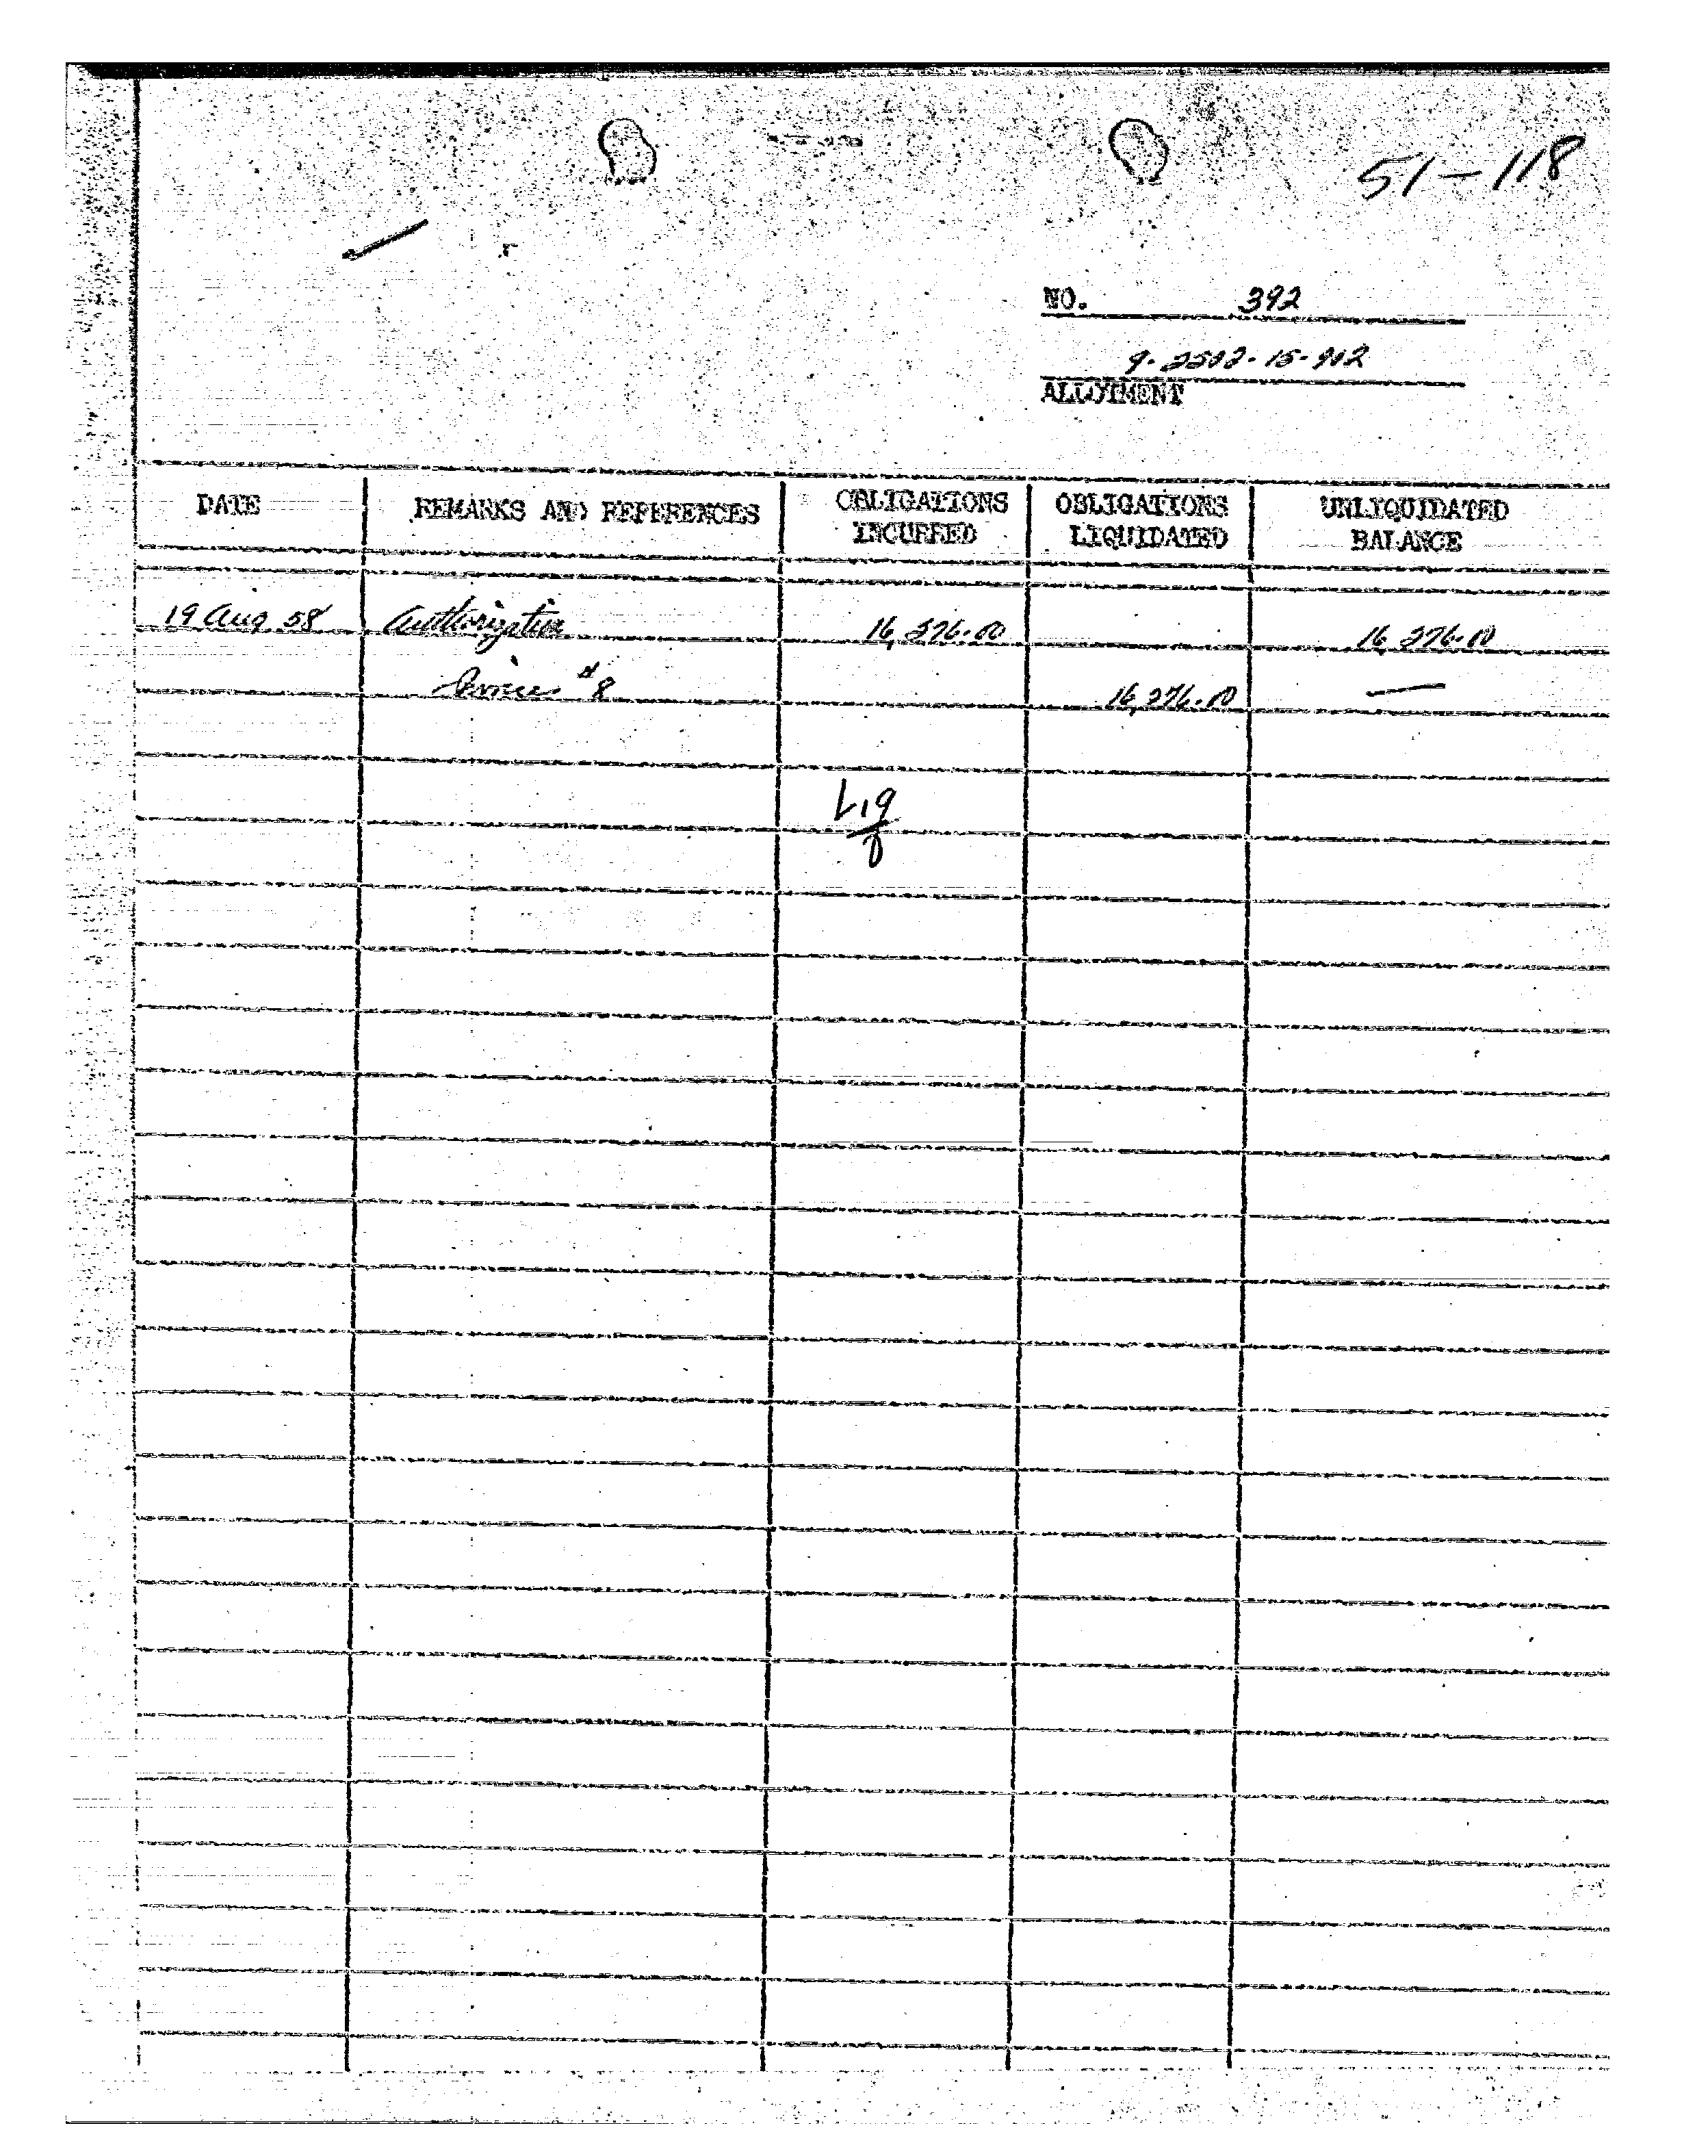 51-118
NO. 392
9-2502-15-902
ALLOTMENT
DATE REMARKS AND REFERENCES OBLIGATIONS INCURRED OBLIGATIONS LIQUIDATED UNLIQUIDATED BALANCE
19 Aug 58 Authorization 16,276.00 16,276.00
Invoice #8 16,276.00 —
Liq